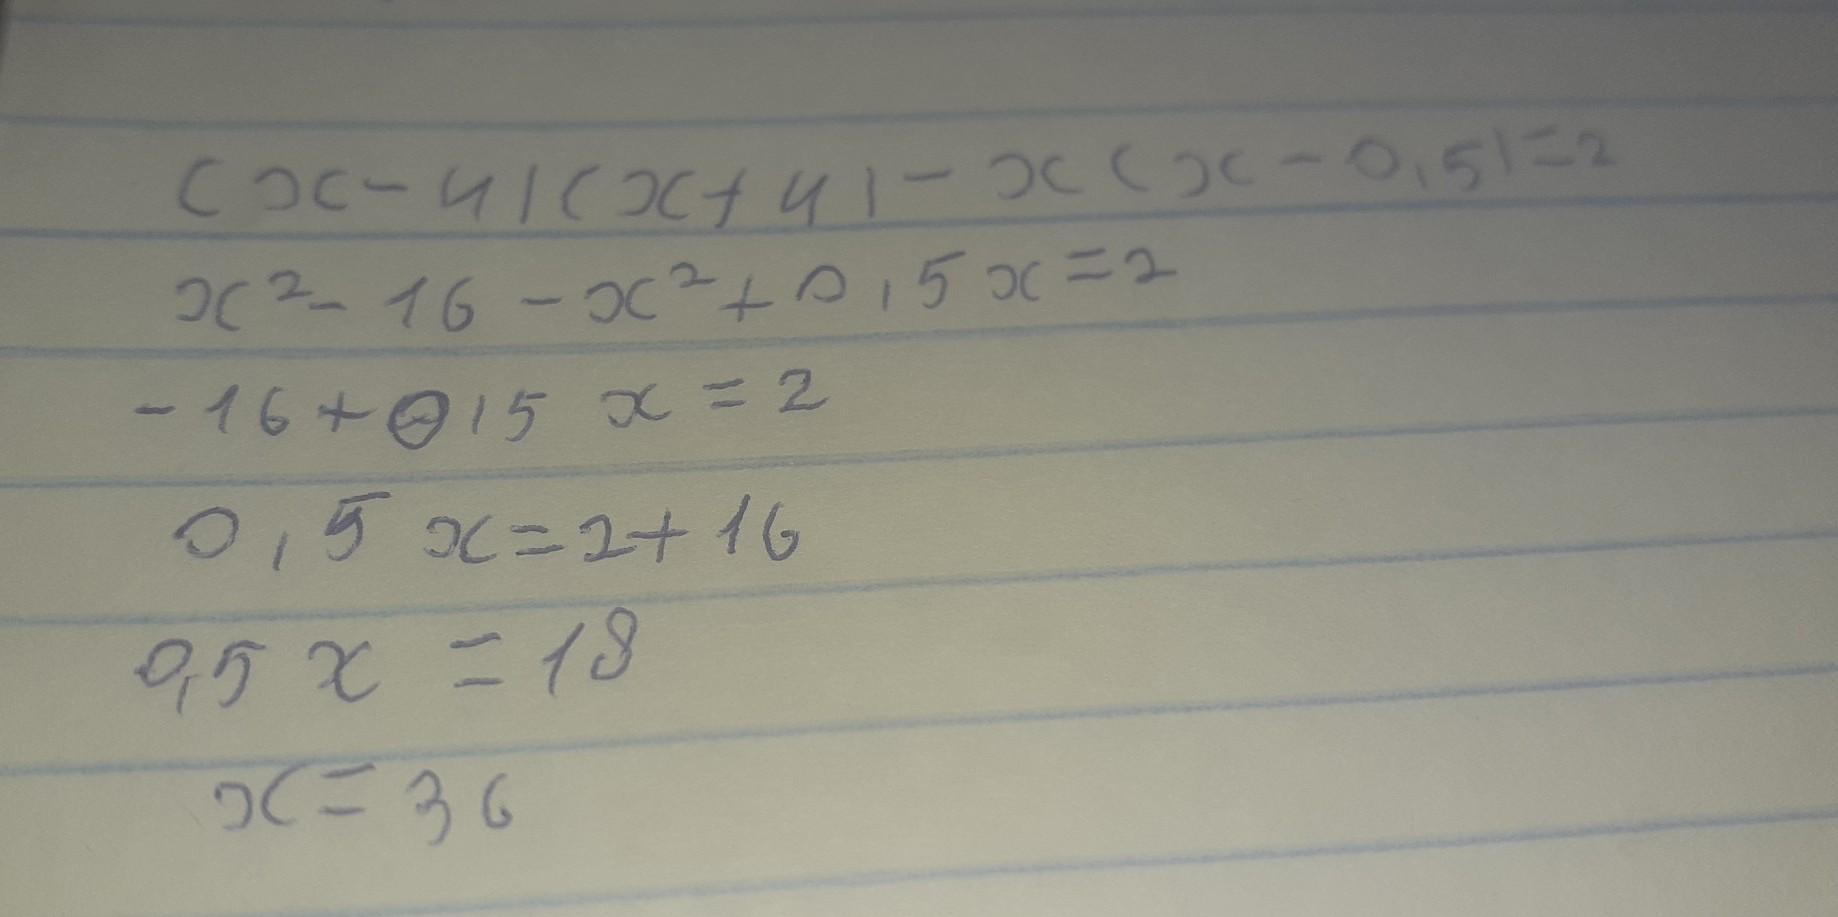 (x-4)(x+4)-x(x-0,5)=2
x²-16-x²+0,5x=2
-16+0,5x=2
0,5x=2+16
0,5x=18
x=36